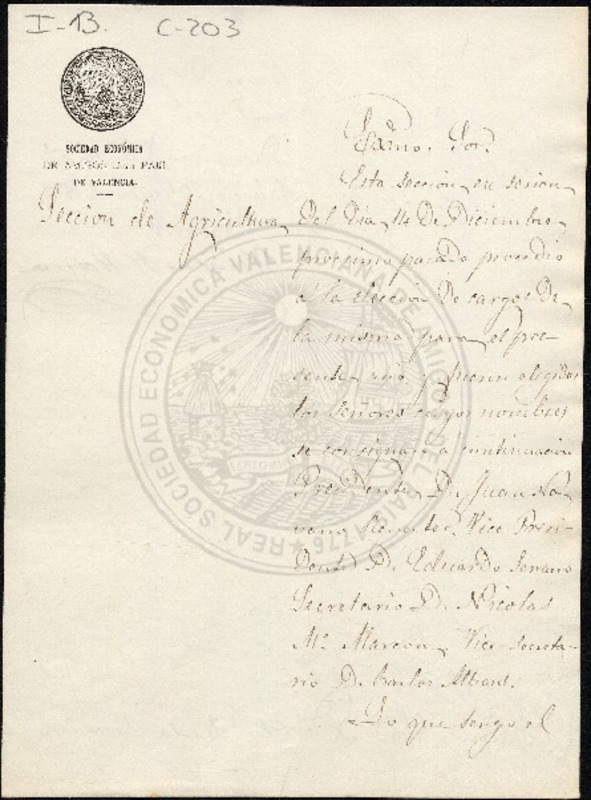 I-13. C-203
SOCIEDAD ECONÓMICA
DE AMIGOS DEL PAIS
DE VALENCIA.
Seccion de Agricultura
Exmo. Sor.
Esta seccion en sesion
del dia 14 de Diciembre
procsimo pasado procedio
a la eleccion de cargos de
la misma para el pre-
sente año y fueron elegidos
los Señores cuyos nombres
se consignan a continuacion
Presidente Dn Juan Na-
varro Vice Presi-
dente D. Eduardo Serrano
Secretario D. Nicolas
Mª Vice-secreta-
rio D. Carlos Albors.
Lo que tengo el
REAL SOCIEDAD ECONOMICA VALENCIANA DE AMIGOS DEL PAIS 1776